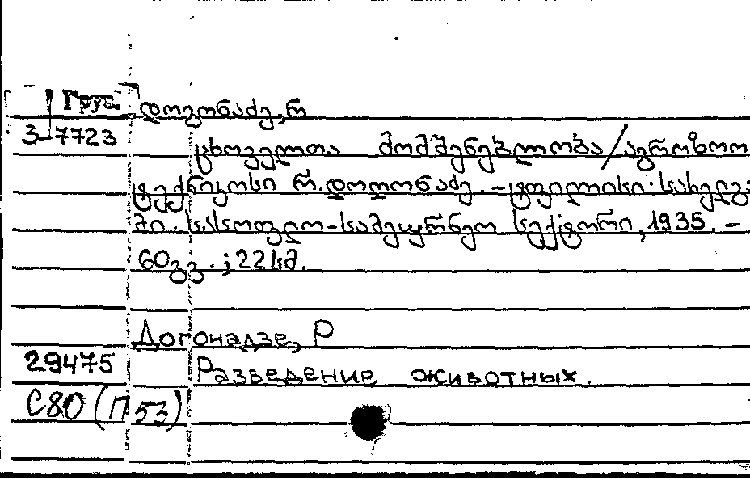 Груз. დოღონაძე, რ
3-7723
ცხოველთა მომშენებლობა/აგროზოო
ტექნიკოსი რ. დოღონაძე. - ტფილისი: სახელგა
მი. სასოფლო-სამეურნეო სექტორი, 1935. -
60გვ. ; 22სმ.
Догонадзе, Р
29475 Разведение животных.
С80 (П53)